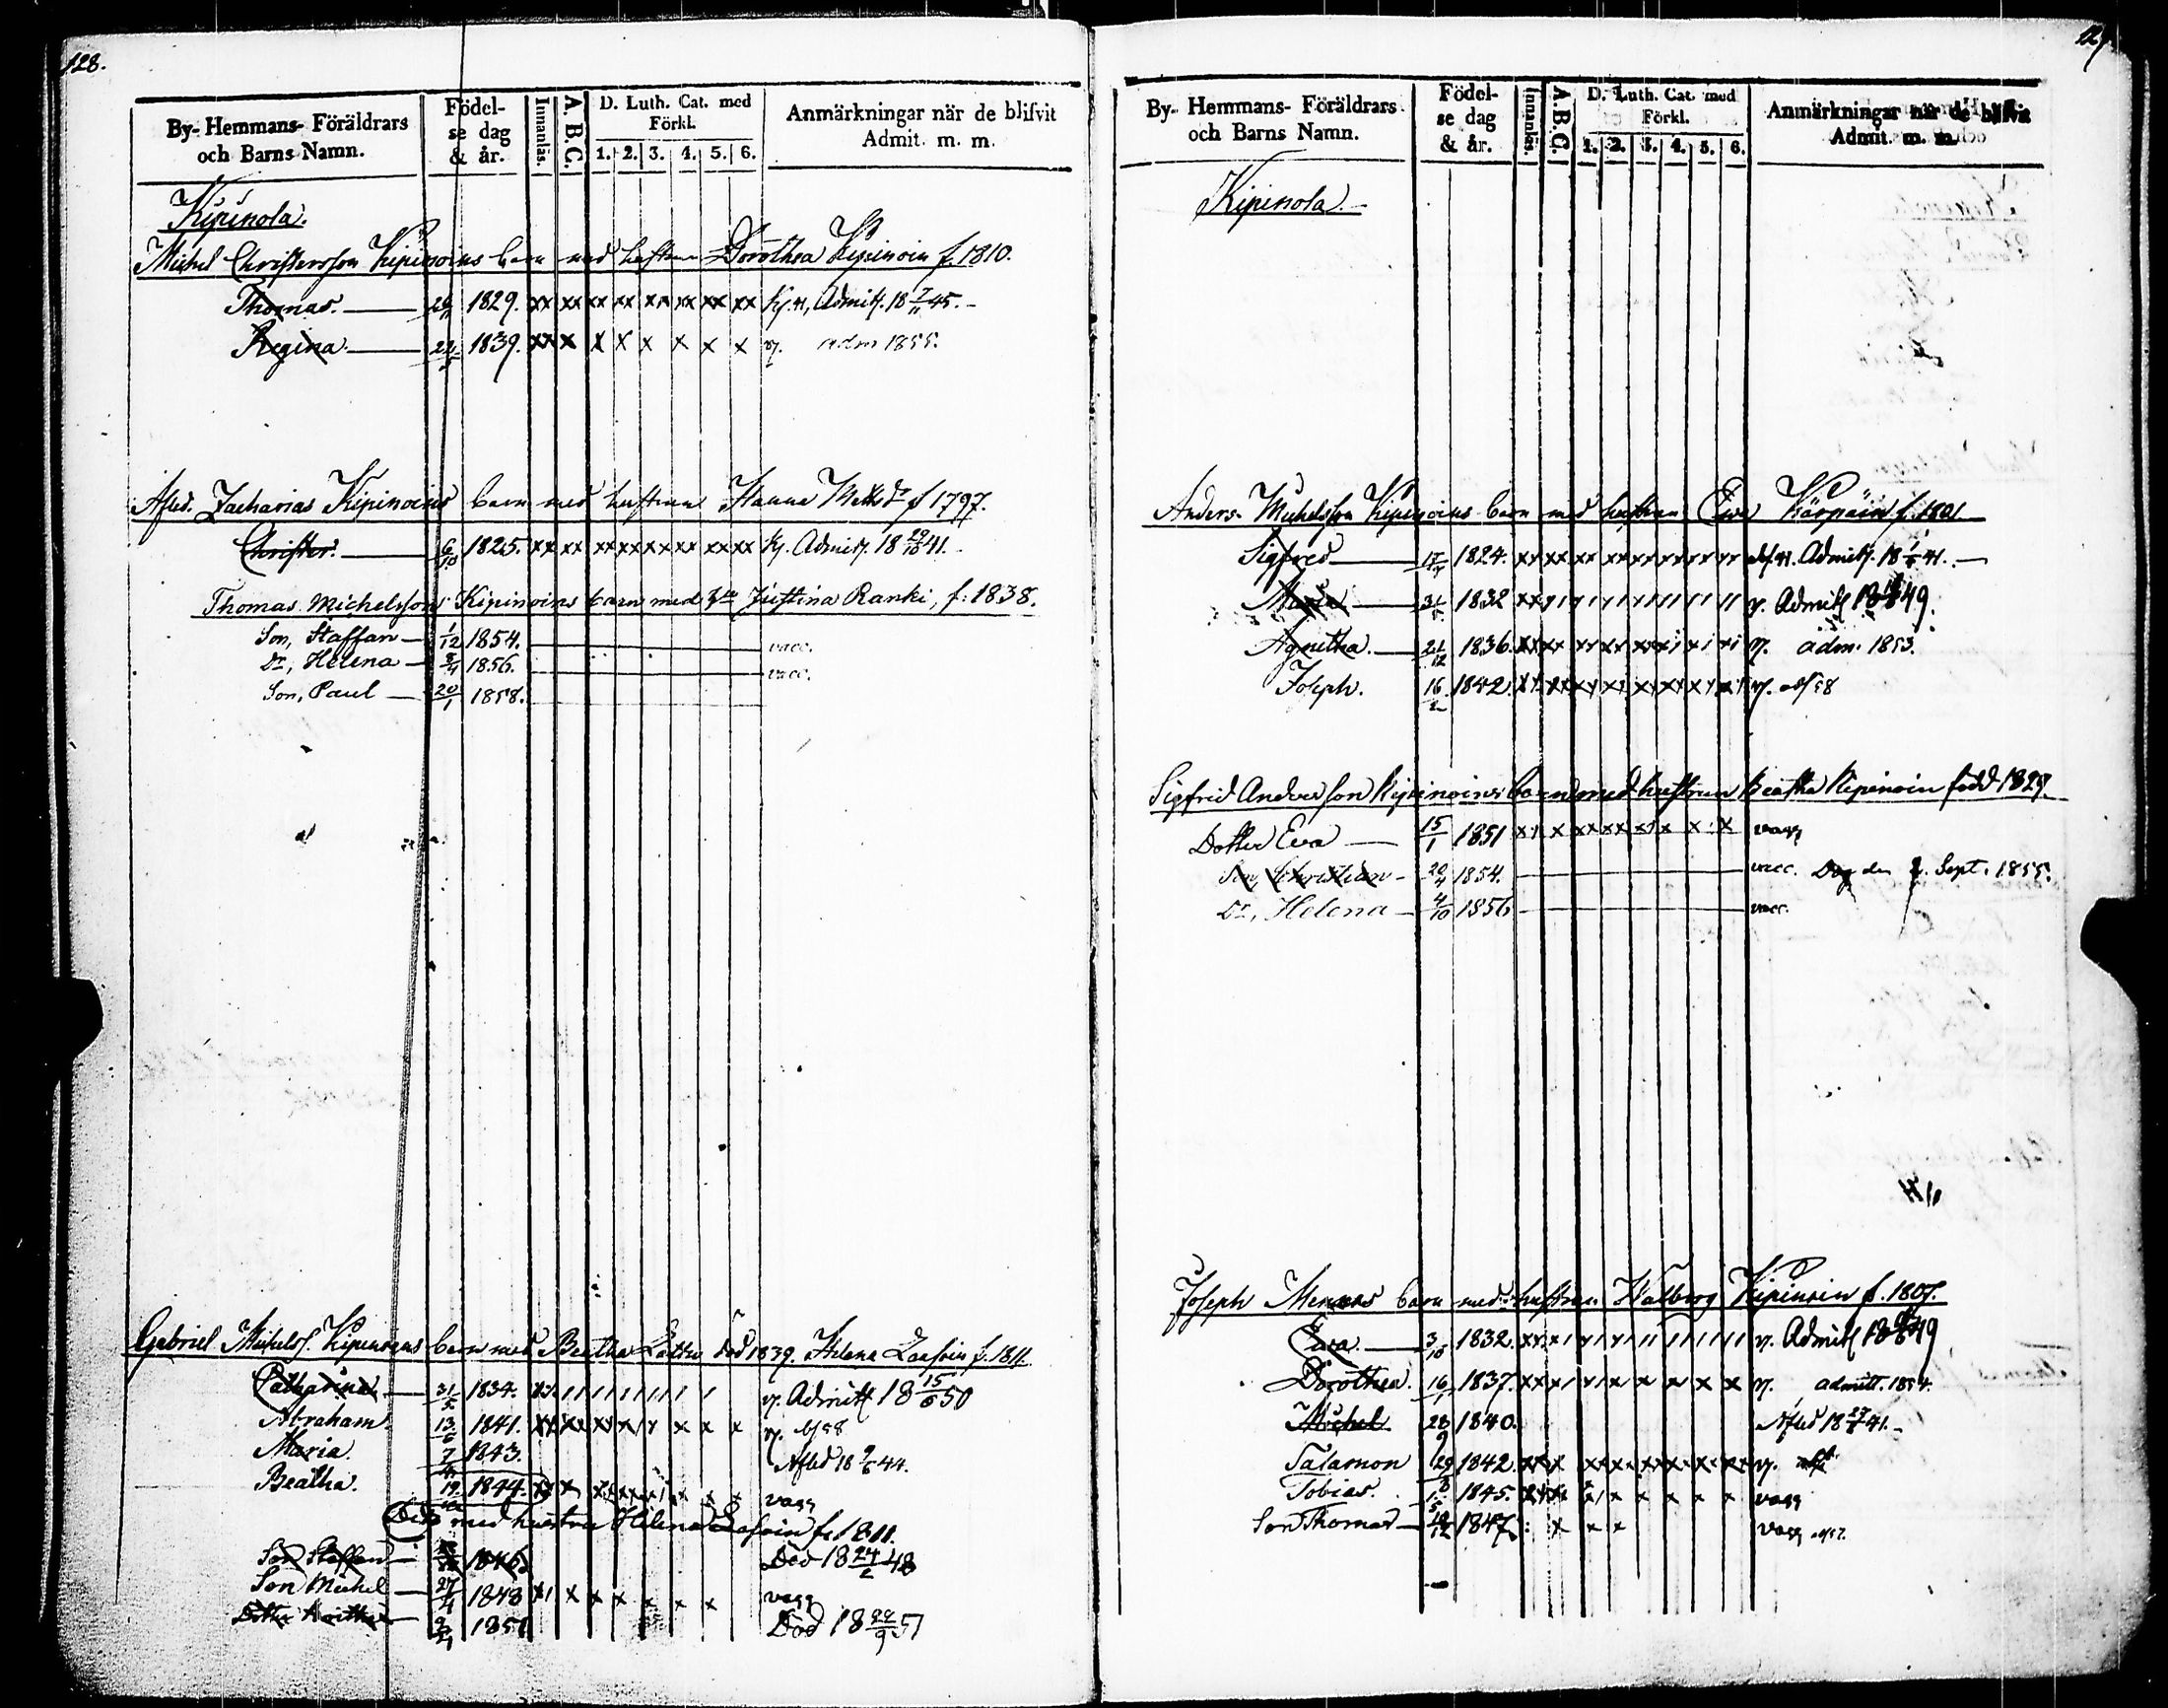 128.
By- Hemmans- Föräldrars och Barns Namn.
Födel-se dag & år.
Innanläs.
A. B. C.
D. Luth. Cat. med Förkl.
1. 2. 3. 4. 5. 6.
Anmärkningar när de blifvit Admit. m. m.
Kipinola.
Michel Christersson Kipinoins barn med hustrun Dorothea Kipinoin f. 1810.
Thomas. 1829. xx xx xx xx xx xx xx xx Admitt. 18 7/11 45.
Regina. 1839. xx x x x x x x x v. adm 1855.
Afled. Zacharias Kipinoins barn med hustrun Hanna f 1797.
Christer. 6/10 1825. xx xx xx xx xx xx xx xx Admitt. 18 41.
Thomas Michelssons Kipinoins barn med Justina Ranki, f: 1838.
Son, Staffan 1/12 1854. vacc.
Dr, Helena 1856. vacc.
Son, Paul 20/1 1858.
Gabriel Michelss. Kipinoins barn med Beatha död 1839. Helena f. 1811.
Catharina 31/5 1834. v. Admitt 18 15/6 50
Abraham. 13/6 1841. v.
Maria. 1843. Afled 18 44.
Beatha. 19 1844. vacc
med hustru Helena f. 1811.
Son Staffan 1846 Död 18 24/2 48
Son Michel 27/4 1848 x x x x x x vacc
Dotter 1851 Död 18 22/9 51
129.
By- Hemmans- Föräldrars och Barns Namn.
Födel-se dag & år.
Innanläs.
A. B. C.
D. Luth. Cat. med Förkl.
1. 2. 3. 4. 5. 6.
Anmärkningar när de blifvit Admit. m. m.
Kipinola.
Anders Michelsson Kipinoins barn med hustrun Ewa Kärpäin f. 1801
Sigfred 1824. Admitt. 18 41.
Maria 31 1832 v. Admitt 18 49.
Agnetha. 21/12 1836. v. adm. 1853.
Joseph. 16/2 1842. v.
Sigfrid Andersson Kipinoins barn med hustrun Beatha Kipinoin född 1829.
Dotter Eva 15/1 1851 vacc
Son, Christian 20/4 1854. vacc. Dog den 2. Sept. 1855.
Dr, Helena 4/10 1856 vacc.
Joseph barn med hustrun Walborg Kipinoin f. 1807.
Ewa. 3/10 1832. v. Admitt 18 49
Dorothea. 16/1 1837. v. admitt. 1854.
Michel 28/9 1840. Afled 18 41.
Salamon 29 1842. v.
Tobias. 1845. vacc
Son Thomas 1847. x x x vacc